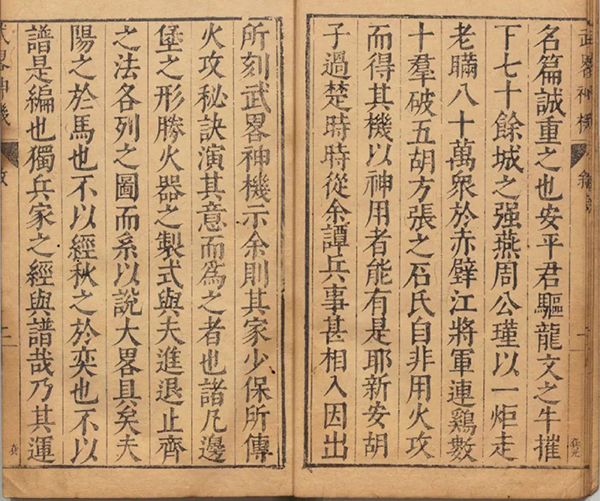 名篇誠重之也安平君驅龍文之牛摧
下七十餘城之强燕周公瑾以一炬走
老瞞八十萬衆於赤壁江將軍連鷄數
十羣破五胡方張之石氏自非用火攻
而得其機以神用者能有是耶新安胡
子過楚時時從余譚兵事甚相入因出
所刻武畧神機示余則其家少保所傳
火攻秘訣演其意而為之者也諸凡邊
堡之形勝火器之製式與夫進退止齊
之法各列之圖而系以說大畧具矣夫
陽之於馬也不以經秋之於奕也不以
譜是編也獨兵家之經與譜哉乃其運
武畧神機
二